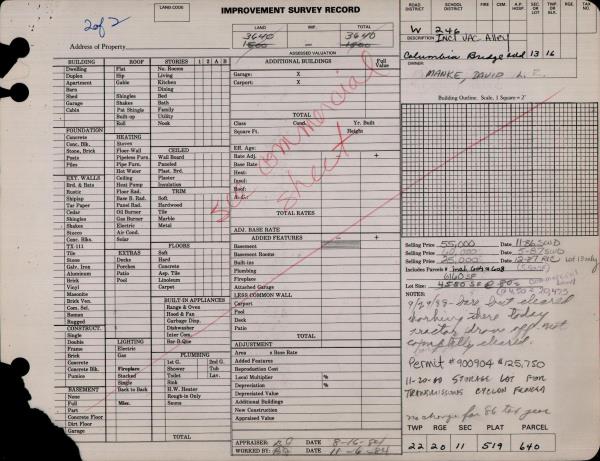 2 of 2
LAND CODE
IMPROVEMENT SURVEY RECORD
LAND IMP. TOTAL
3640 3640
1500 — 1500
Address of Property
ASSESSED VALUATION
ROAD DISTRICT SCHOOL DISTRICT FIRE CEM. A.P. HOSP. SEC. OR LOT RGE. TAX
W 246
DESCRIPTION Incl Vac Alley
Columbia Bridge add 13 16
MANKE, DAVID L. E.
BUILDING ROOF STORIES 1 2 A B
Dwelling Flat No. Rooms
Duplex Hip Living
Apartment Gable Kitchen
Barn Dining
Shed Shingles Bed
Garage Shakes Bath
Cabin Pat Shingle Family
Built-up Utility
Roll Nook
FOUNDATION
Concrete HEATING
Conc. Blk. Stoves
Stone, Brick Floor Wall CEILED
Posts Pipeless Furn. Wall Board
Piles Pipe Furn. Paneled
Hot Water Plast. Brd.
EXT. WALLS Ceiling Plaster
Brd. & Bats Heat Pump Insulation
Rustic Floor Rad. TRIM
Shiplap Base B. Rad. Soft
Tar Paper Panel Rad. Hardwood
Cedar Oil Burner Tile
Shingles Gas Burner Marble
Shakes Electric Metal
Stucco Air Cond.
Conc. Blks. Solar
TX-111 FLOORS
Tile EXTRAS Soft
Stone Decks Hard
Galv. Iron Porches Concrete
Aluminum Patio Asp. Tile
Brick Pool Linoleum
Vinyl Carpet
Masonite
Brick Ven.
Com. Sel. BUILT-IN APPLIANCES
Roman Range & Oven
Rugged Hood & Fan
CONSTRUCT. Garbage Disp.
Single Dishwasher
Double LIGHTING Inter Com.
Frame Electric Bar-B-Que
Brick Gas
Concrete PLUMBING
Concrete Blk. Fireplace 1st G. 2nd G.
Pumice Stacked Shower Tub
Single Toilet Lav.
BASEMENT Back to Back Sink
None H.W. Heater
Full Misc. Rough-in Only
Part Sauna
Concrete Floor
Dirt Floor
Garage
TOTAL
ADDITIONAL BUILDINGS Full Value
Garage: X
Carport: X
TOTAL
Class Cond. Yr. Built
Square Ft. Height
Eff. Age:
Rate Adj. − +
Base Rate
Heat:
Insul:
Roof:
A. C.:
TOTAL RATES
ADJ. BASE RATE
ADDED FEATURES − +
Basement
Basement Rooms
Built-ins
Plumbing
Fireplace
Attached Garage
LESS COMMON WALL
Carport
Pool
Deck
Patio
TOTAL
ADJUSTMENT
Area x Base Rate
Added Features
Reproduction Cost
Local Multiplier %
Depreciation %
Depreciated Value
Additional Buildings
New Construction
Appraised Value
see commercial
sheet
APPRAISER DATE 8-16-84
WORKED BY: DATE 11-6-84
Building Outline. Scale, 1 Square = 2'
Selling Price 55,000 Date 11-86 SWD
Selling Price Date 5-87 SWD
Selling Price 25,000 Date 12-87 R/C Lot 13 only
Includes Parcels #
6160 SF
Lot Size: 4550 SF @ 80¢
NOTES:
permit # 900904 $125,750
11-20-90 STORAGE LOT FOR
no change for 86 tax year
TWP RGE SEC PLAT PARCEL
22 20 11 519 640